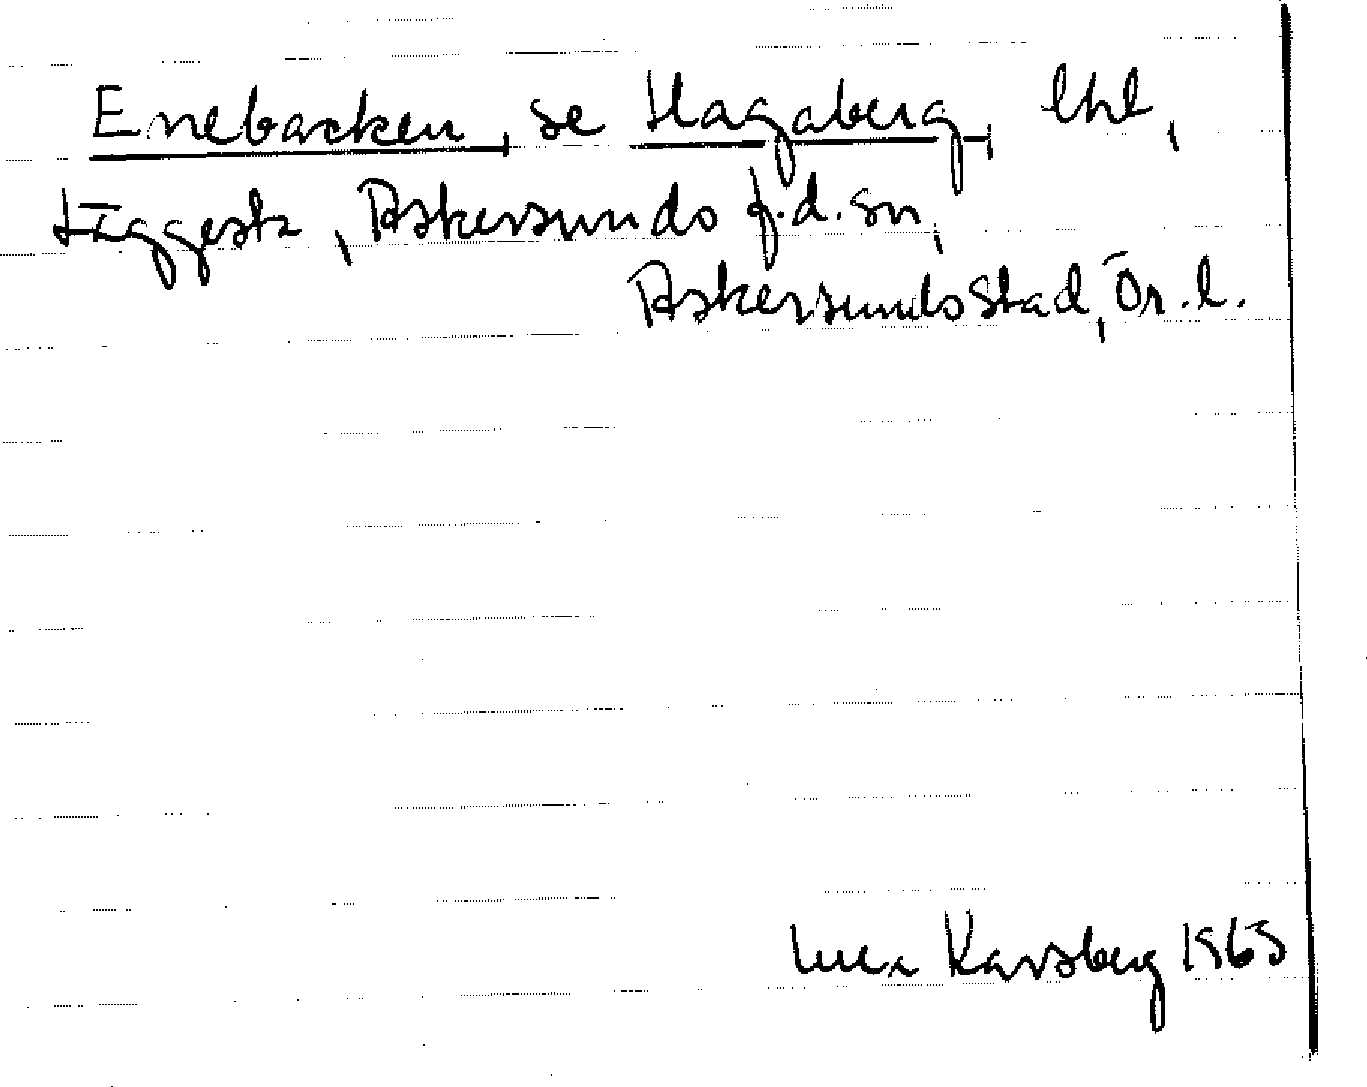 Enebacken, se Hagaberg, lht,
Läggesta, Askersunds f.d. sn,
Askersunds stad, Ör. l.
Karsberg 1965